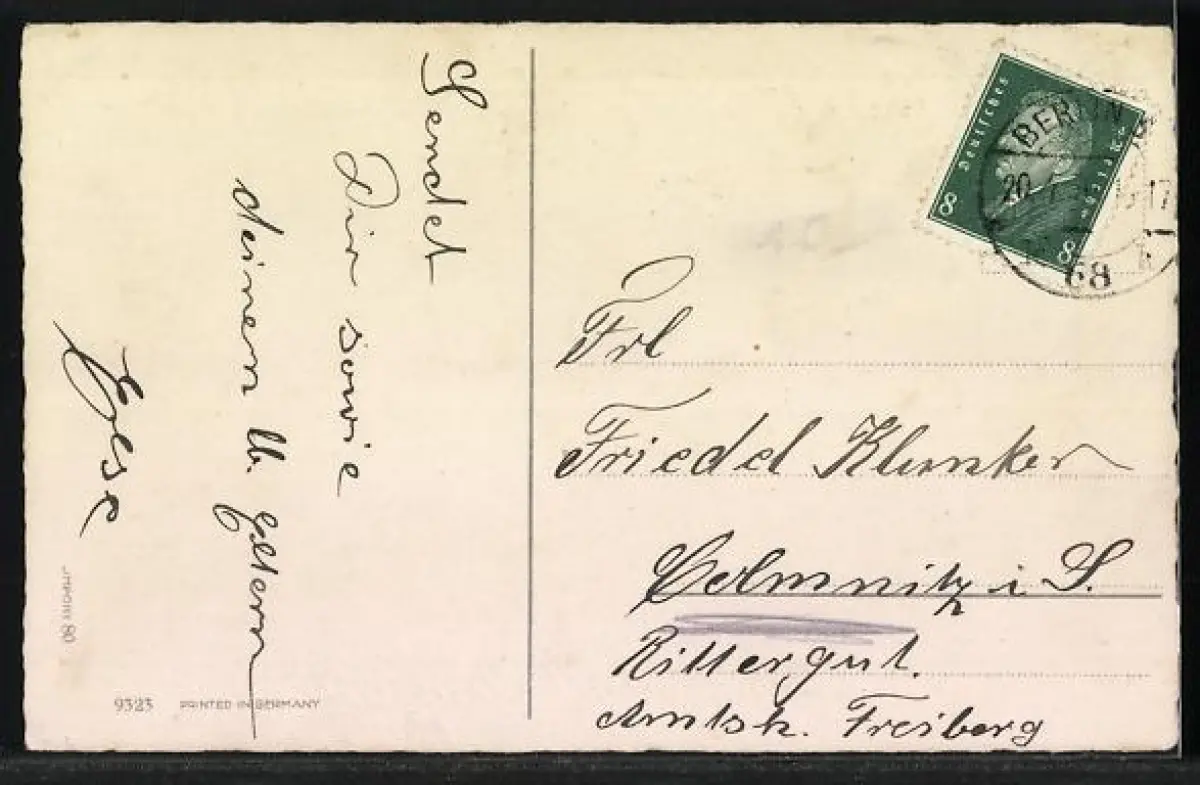 Sendet
Dir sowie
deinen lb. Eltern
Else
9323 PRINTED IN GERMANY
Deutsches Reich
8 8
BERLIN
20.
17
68
Frl
Friedel Klunker
Colmnitz i S.
Rittergut.
Amtsh. Freiberg